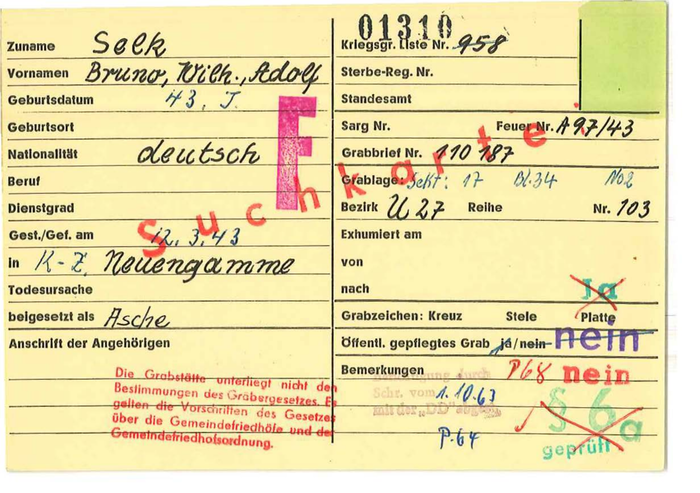 01310
Zuname Selk
Vornamen Bruno, Wilh., Adolf
Geburtsdatum 43. J.
Geburtsort
Nationalität deutsch
Beruf
Dienstgrad
Gest./Gef. am 12.3.43
in K-Z. Neuengamme
Todesursache
beigesetzt als Asche
Anschrift der Angehörigen
Die Grabstätte unterliegt nicht den
Bestimmungen des Gräbergesetzes. Es
gelten die Vorschriften des Gesetzes
über die Gemeindefriedhöfe und der
Gemeindefriedhofsordnung.
F
Suchkarte
Kriegsgr. Liste Nr. 958
Sterbe-Reg. Nr.
Standesamt
Sarg Nr. Feuer Nr. A 97/43
Grabbrief Nr. 110 187
Grablage: Sekt: 17 Bl. 34 No 2
Bezirk U 27 Reihe Nr. 103
Exhumiert am
von
nach
Ja
Grabzeichen: Kreuz Stele Platte
Öffentl. gepflegtes Grab ja/nein nein
Bemerkungen P68 nein
durch
Schr. vom 1.10.63
mit der „DD"
P.64
§ 6a
geprüft